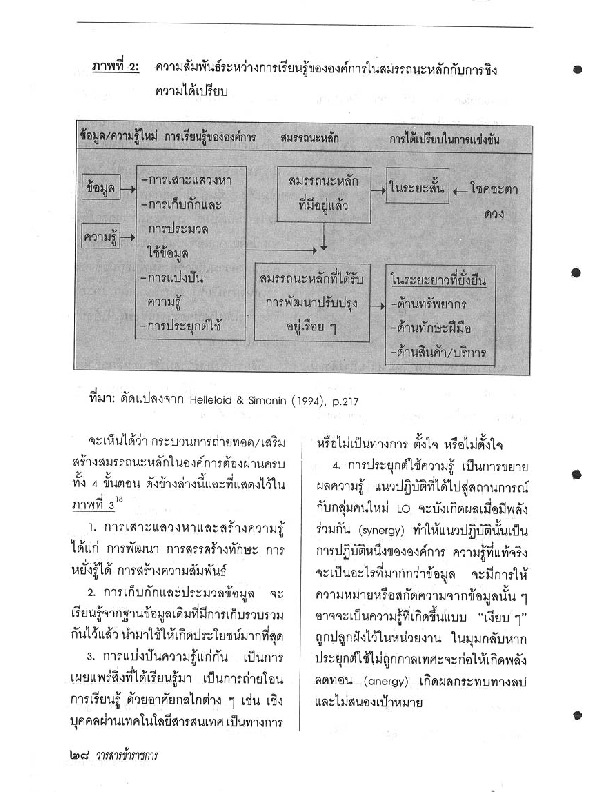 ภาพที่ 2: ความสัมพันธ์ระหว่างการเรียนรู้ขององค์การในสมรรถนะหลักกับการชิง
ความได้เปรียบ
ข้อมูล/ความรู้ใหม่ การเรียนรู้ขององค์การ สมรรถนะหลัก การได้เปรียบในการแข่งขัน
ข้อมูล
ความรู้
-การเสาะแสวงหา
-การเก็บกักและ
การประมวล
ใช้ข้อมูล
-การแบ่งปัน
ความรู้
-การประยุกต์ใช้
สมรรถนะหลัก
ที่มีอยู่แล้ว
สมรรถนะหลักที่ได้รับ
การพัฒนาปรับปรุง
อยู่เรื่อย ๆ
ในระยะสั้น
โชคชะตา
ดวง
ในระยะยาวที่ยั่งยืน
-ด้านทรัพยากร
-ด้านทักษะฝีมือ
-ด้านสินค้า/บริการ
ที่มา: ดัดแปลงจาก Helleloid & Simonin (1994), p.217
จะเห็นได้ว่า กระบวนการถ่ายทอด/เสริม
สร้างสมรรถนะหลักในองค์การต้องผ่านครบ
ทั้ง 4 ขั้นตอน ดังข้างล่างนี้และที่แสดงไว้ใน
ภาพที่ 3
1. การเสาะแสวงหาและสร้างความรู้
ได้แก่ การพัฒนา การสรรสร้างทักษะ การ
หยั่งรู้ได้ การสร้างความสัมพันธ์
2. การเก็บกักและประมวลข้อมูล จะ
เรียนรู้จากฐานข้อมูลเดิมที่มีการเก็บรวบรวม
กันไว้แล้ว นำมาใช้ให้เกิดประโยชน์มากที่สุด
3. การแบ่งปันความรู้แก่กัน เป็นการ
เผยแพร่สิ่งที่ได้เรียนรู้มา เป็นการถ่ายโอน
การเรียนรู้ ด้วยอาศัยกลไกต่าง ๆ เช่น เชิง
บุคคลผ่านเทคโนโลยีสารสนเทศ เป็นทางการ
หรือไม่เป็นทางการ ตั้งใจ หรือไม่ตั้งใจ
4. การประยุกต์ใช้ความรู้ เป็นการขยาย
ผลความรู้ แนวปฏิบัติที่ได้ไปสู่สถานการณ์
กับกลุ่มคนใหม่ LO จะบังเกิดผลเมื่อมีพลัง
ร่วมกัน (synergy) ทำให้แนวปฏิบัตินั้นเป็น
การปฏิบัติหนึ่งขององค์การ ความรู้ที่แท้จริง
จะเป็นอะไรที่มากกว่าข้อมูล จะมีการให้
ความหมายหรือสกัดความจากข้อมูลนั้น ๆ
อาจจะเป็นความรู้ที่เกิดขึ้นแบบ "เงียบ ๆ"
ถูกปลูกฝังไว้ในหน่วยงาน ในมุมกลับหาก
ประยุกต์ใช้ไม่ถูกกาลเทศะจะก่อให้เกิดพลัง
ลดทอน (anergy) เกิดผลกระทบทางลบ
และไม่สนองเป้าหมาย
๒๘ วารสารข้าราชการ